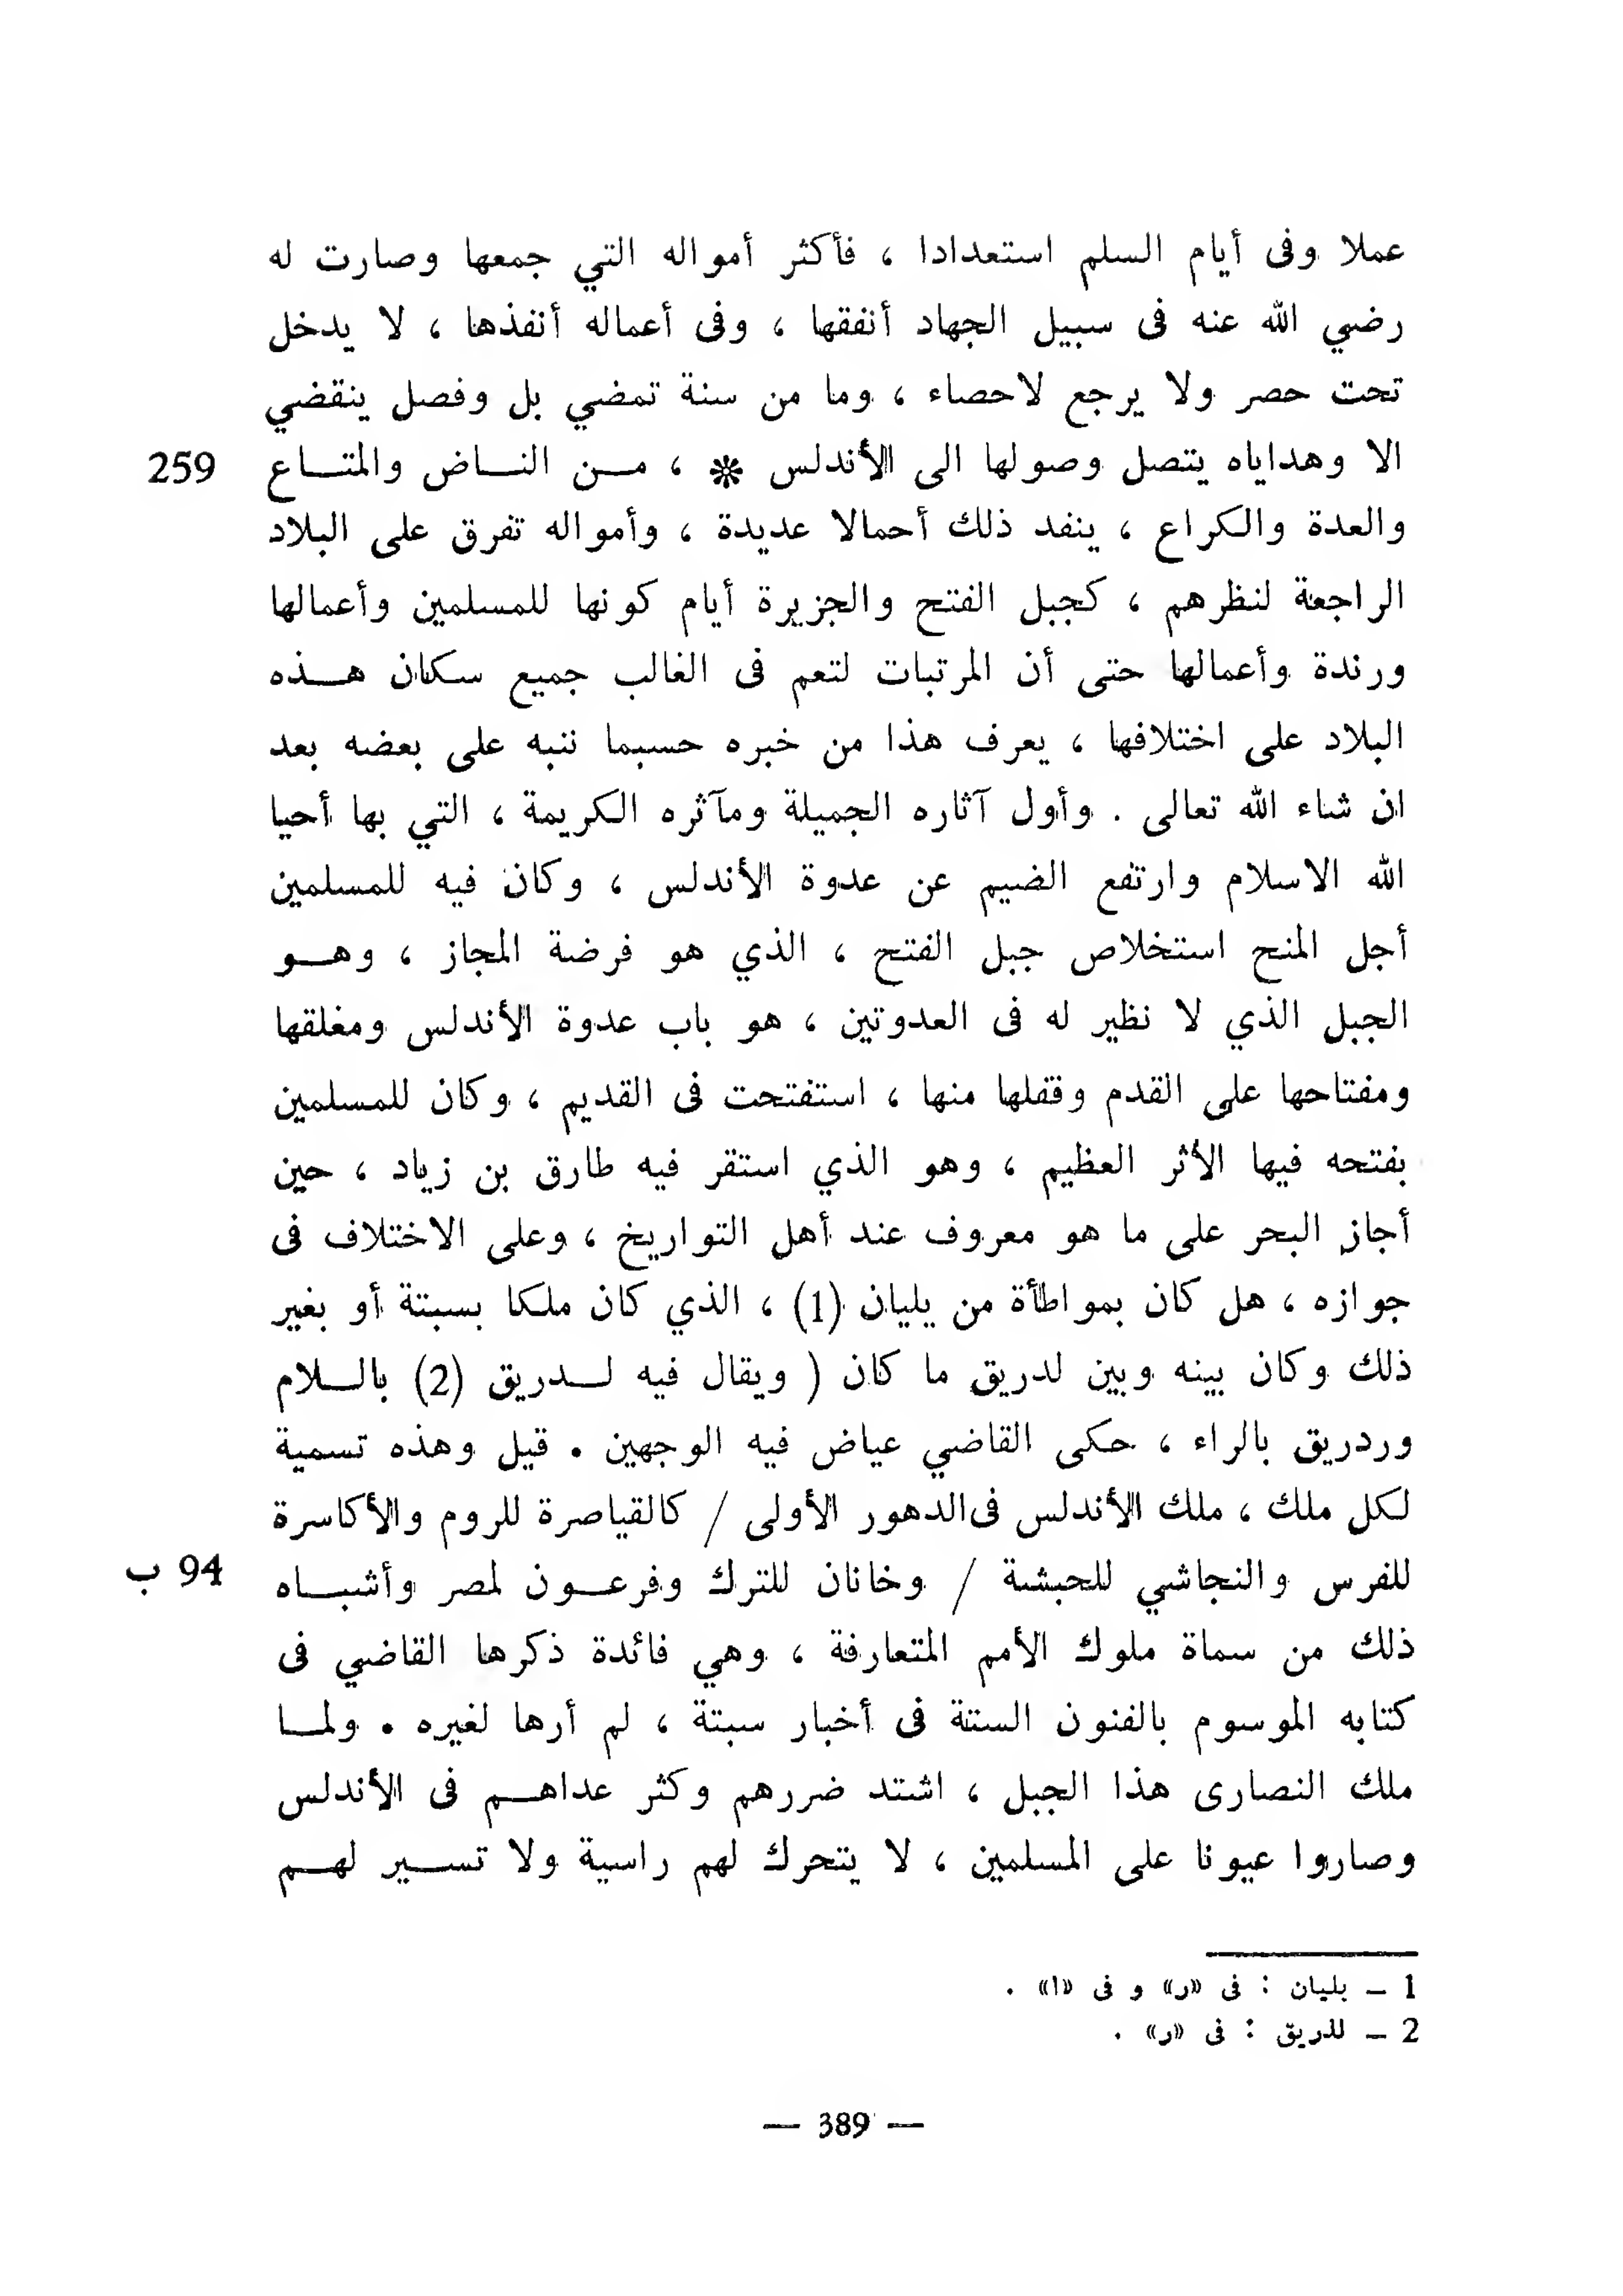 عملا وفى أيام السلم استعدادا ، فأكثر أمواله التي جمعها وصارت له
رضي الله عنه فى سبيل الجهاد أنفقها ، وفى أعماله أنفذها ، لا يدخل
تحت حصر ولا يرجع لاحصاء ، وما من سنة تمضي بل وفصل ينقضي
الا وهداياه يتصل وصولها الى الأندلس * ، مـن النـاض والمتـاع 259
والعدة والكراع ، ينفد ذلك أحمالا عديدة ، وأمواله تفرق على البلاد
الراجعة لنظرهم ، كجبل الفتح والجزيرة أيام كونها للمسلمين وأعمالها
ورندة وأعمالها حتى أن المرتبات لتعم فى الغالب جميع سكان هـذه
البلاد على اختلافها ، يعرف هذا من خبره حسبما ننبه على بعضه بعد
ان شاء الله تعالى . وأول آثاره الجميلة ومآثره الكريمة ، التي بها أحيا
الله الاسلام وارتفع الضيم عن عدوة الأندلس ، وكان فيه للمسلمين
أجل المنح استخلاص جبل الفتح ، الذي هو فرضة المجاز ، وهـو
الجبل الذي لا نظير له فى العدوتين ، هو باب عدوة الأندلس ومغلقها
ومفتاحها على القدم وقفلها منها ، استفتحت فى القديم ، وكان للمسلمين
بفتحه فيها الأثر العظيم ، وهو الذي استقر فيه طارق بن زياد ، حين
أجاز البحر على ما هو معروف عند أهل التواريخ ، وعلى الاختلاف فى
جوازه ، هل كان بمواطأة من يليان (1) ، الذي كان ملكا بسبتة أو بغير
ذلك وكان بينه وبين لدريق ما كان ( ويقال فيه لـدريق (2) بالـلام
وردريق بالراء ، حكى القاضي عياض فيه الوجهين . قيل وهذه تسمية
لكل ملك ، ملك الأندلس فى الدهور الأولى / كالقياصرة للروم والأكاسرة
للفرس والنجاشي للحبشة / وخانان للترك وفرعـون لمصر وأشبـاه 94 ب
ذلك من سماة ملوك الأمم المتعارفة ، وهي فائدة ذكرها القاضي فى
كتابه الموسوم بالفنون الستة فى أخبار سبتة ، لم أرها لغيره . ولمـا
ملك النصارى هذا الجبل ، اشتد ضررهم وكثر عداهـم فى الأندلس
وصاروا عيونا على المسلمين ، لا يتحرك لهم راسية ولا تسـير لهـم
1 – بليان : فى «ر» و فى «ا» .
2 – للذريق : فى «ر» .
— 389 —